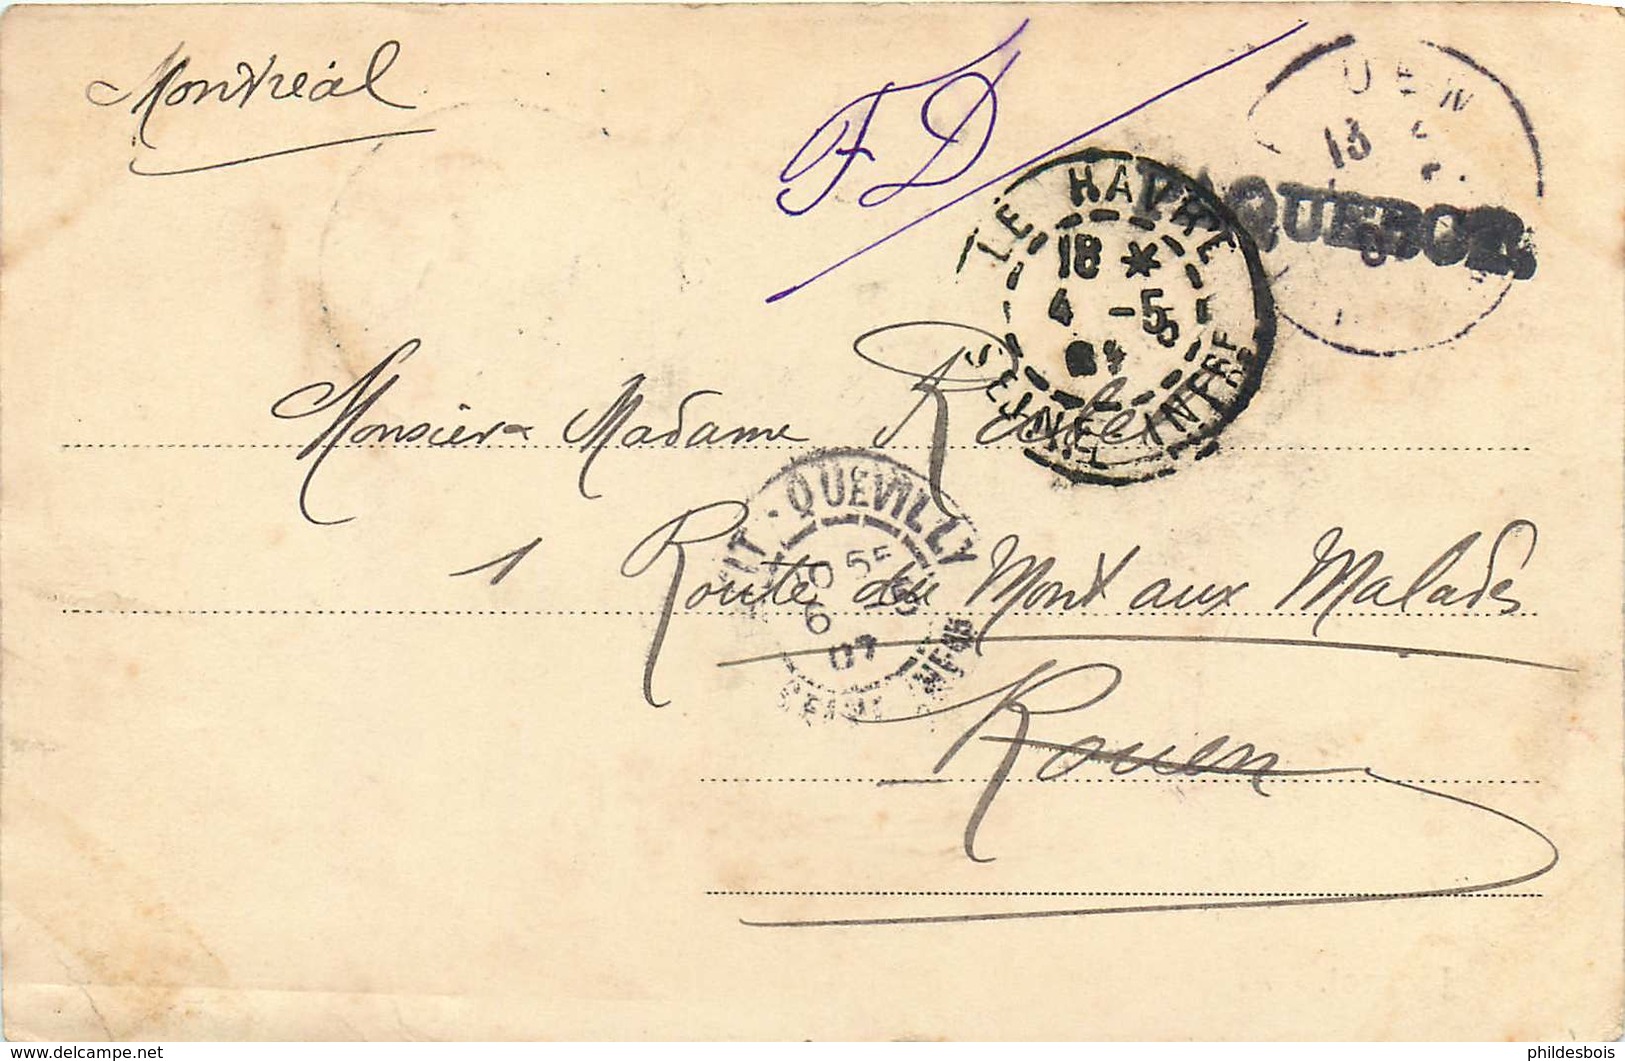 Montréal
FD
UEN
13
PAQUEBOT.
LE HAVRE
18 *
4 -5
SEINE INFRE
Monsieur Madame
1 Route du Mont aux Malades
QUEVILLY
10 55
6
07
SEINE INFRE
Rouen
delcampe.net
phildesbois